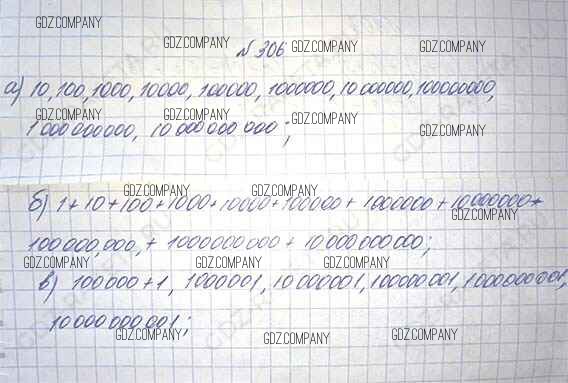 GDZ.COMPANY GDZ.COMPANY GDZ.COMPANY GDZ.COMPANY
№ 306
а) 10, 100, 1000, 10000, 100000, 1000000, 10000000, 100000000,
GDZ.COMPANY GDZ.COMPANY GDZ.COMPANY GDZ.COMPANY
1000000000, 10000000000;
GDZ.COMPANY GDZ.COMPANY
б) 1+10+100+1000+10000+100000+1000000+10000000+
GDZ.COMPANY
100000,000,+1000000000+10000000000;
GDZ.COMPANY GDZ.COMPANY GDZ.COMPANY
в) 100000+1, 1000001, 10000001, 100000001, 1000000001,
10000000001;
GDZ.COMPANY GDZ.COMPANY GDZ.COMPANY